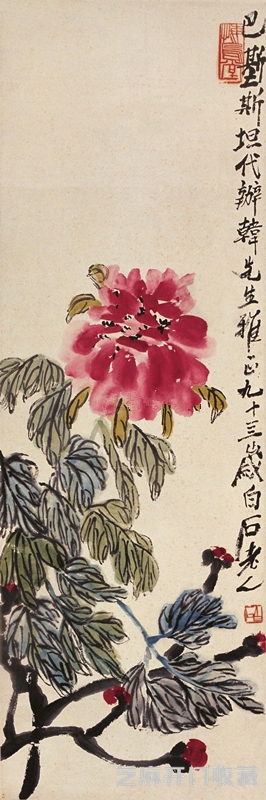 巴基斯坦代辦韓先生雅正九十三歲白石老人
悔烏堂
芝麻开门收藏